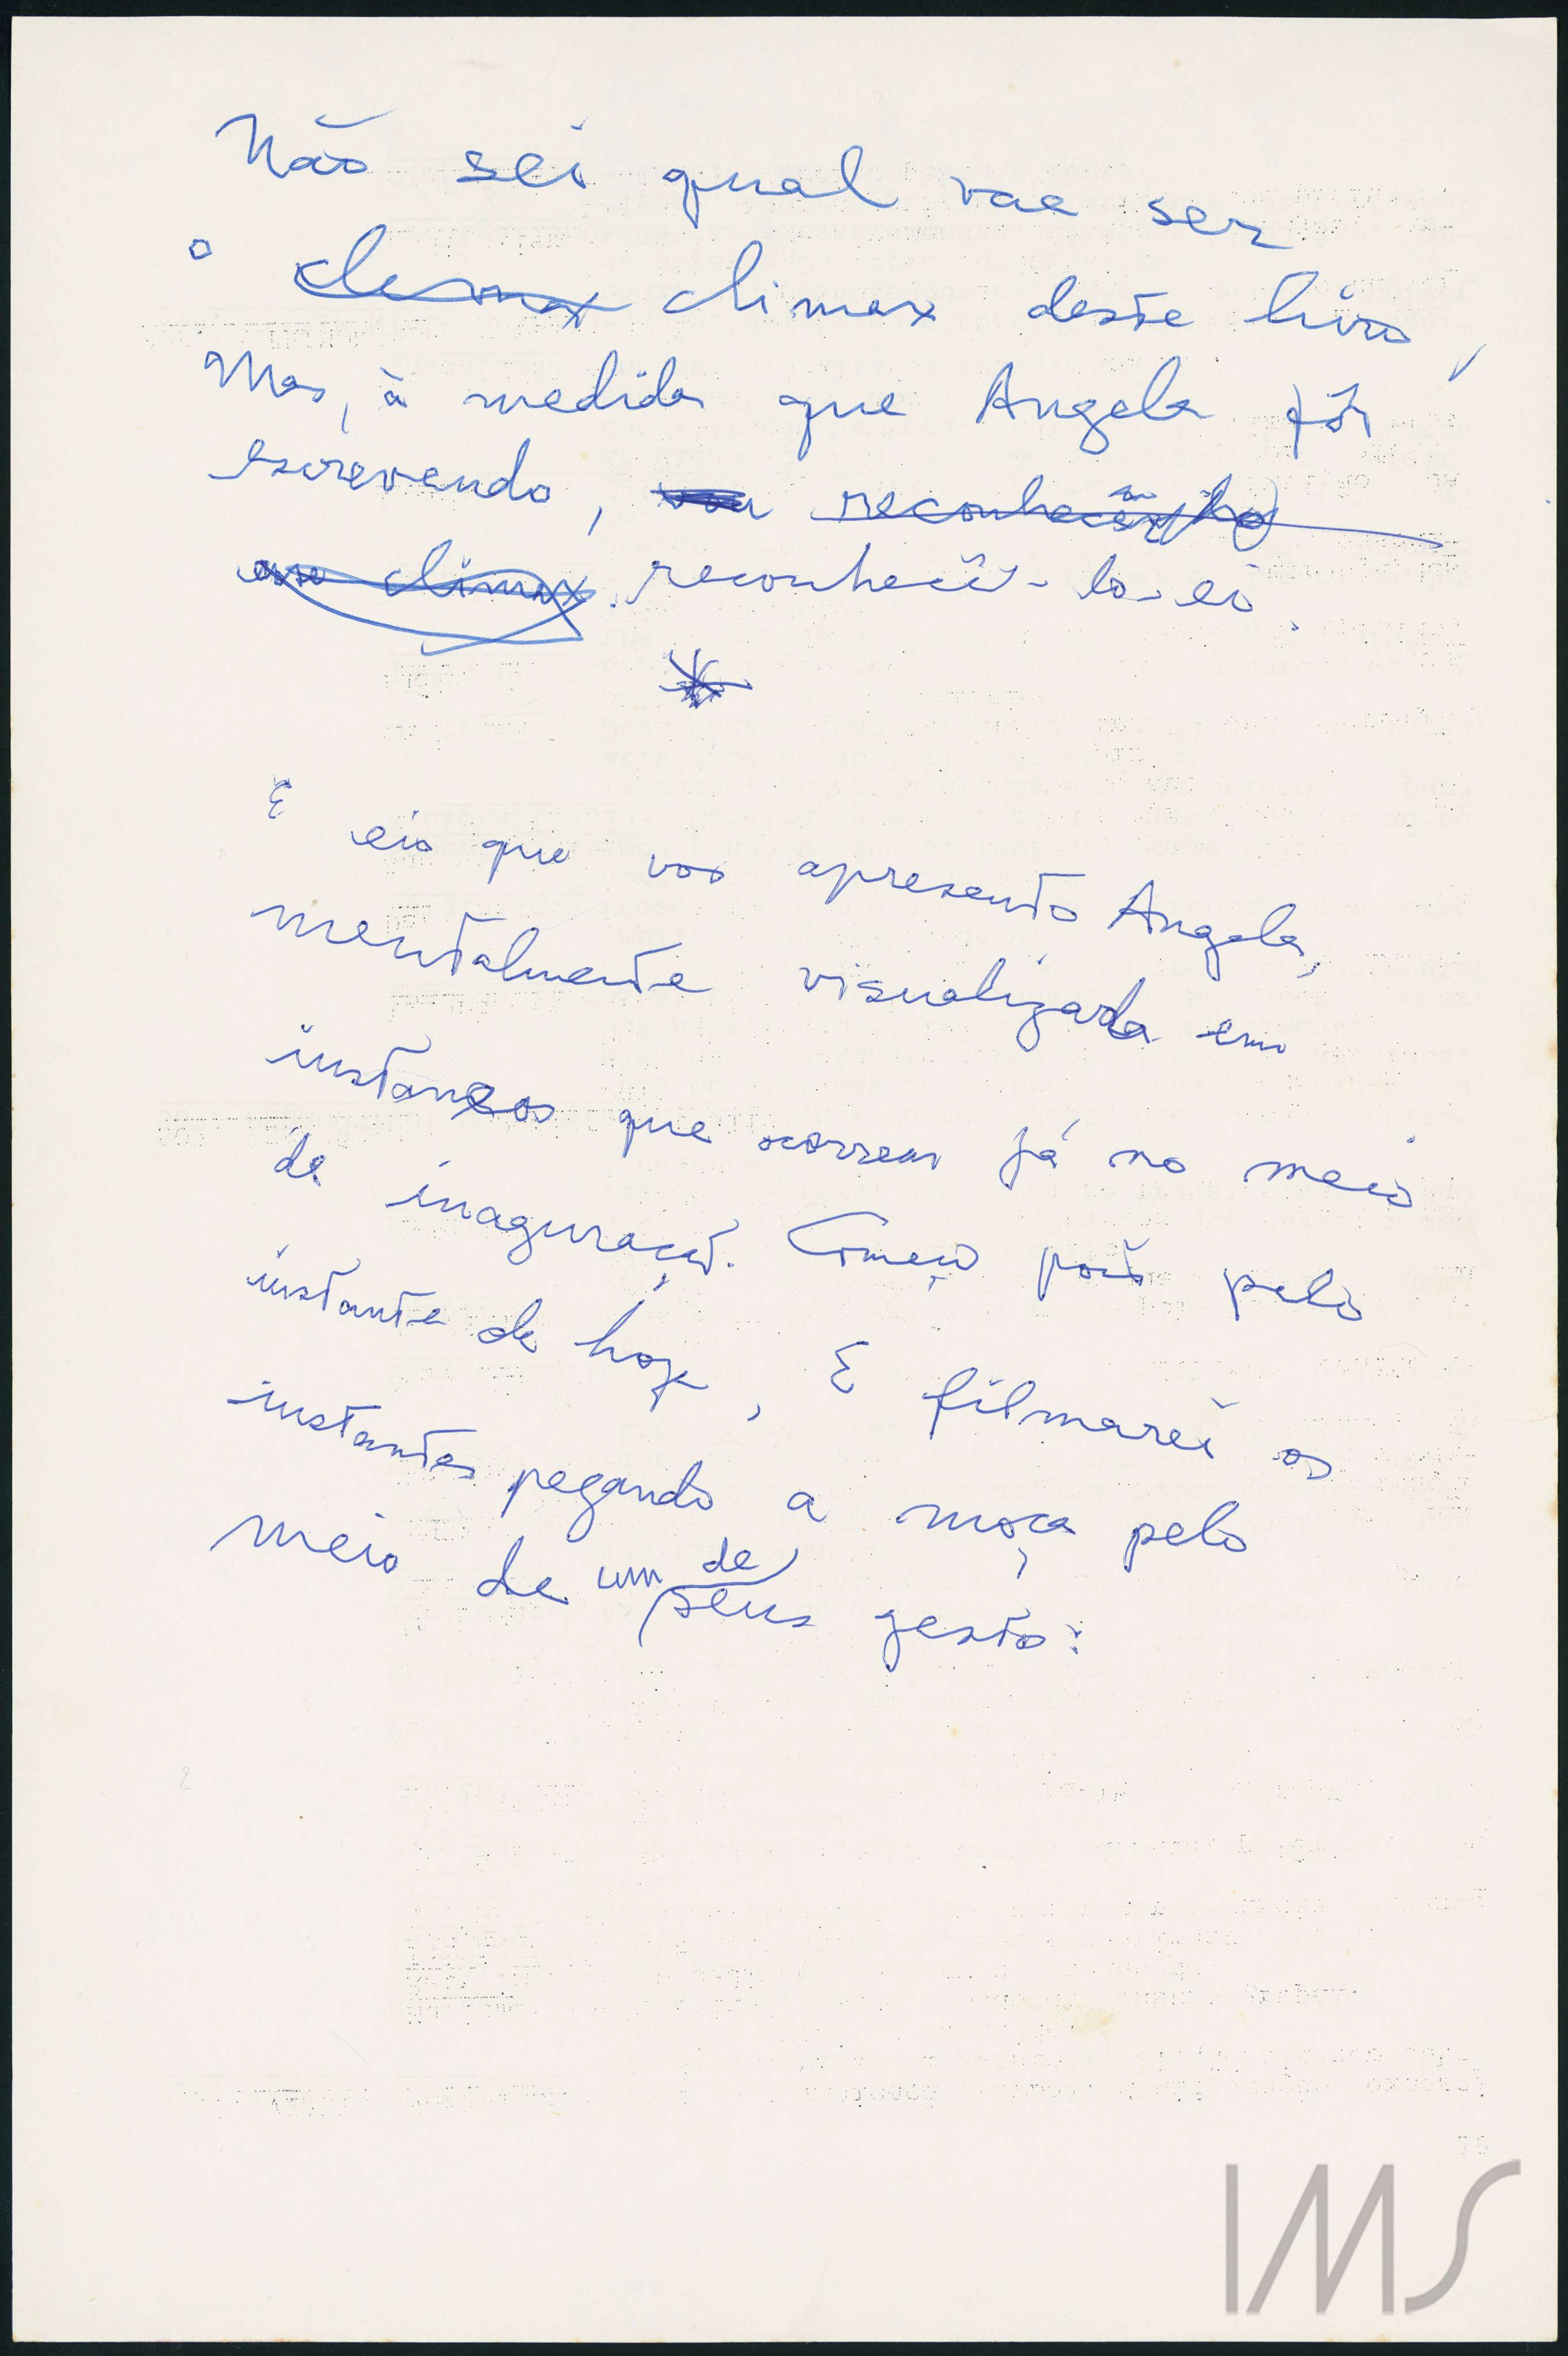 Não sei qual vae ser
o climax deste livro,
Mas, à medida que Angela fôr
escrevendo, vou reconhecê-lo
esse climax. reconhecê-lo-ei.
*
E eis que vos apresento Angela,
mentalmente visualizada em
instantes que ocorrem já no meio
da inaguração. Começo pois pelo
instante de hoje, E filmarei os
instantes pegando a moça pelo
meio de um de seus gestos:
IMS